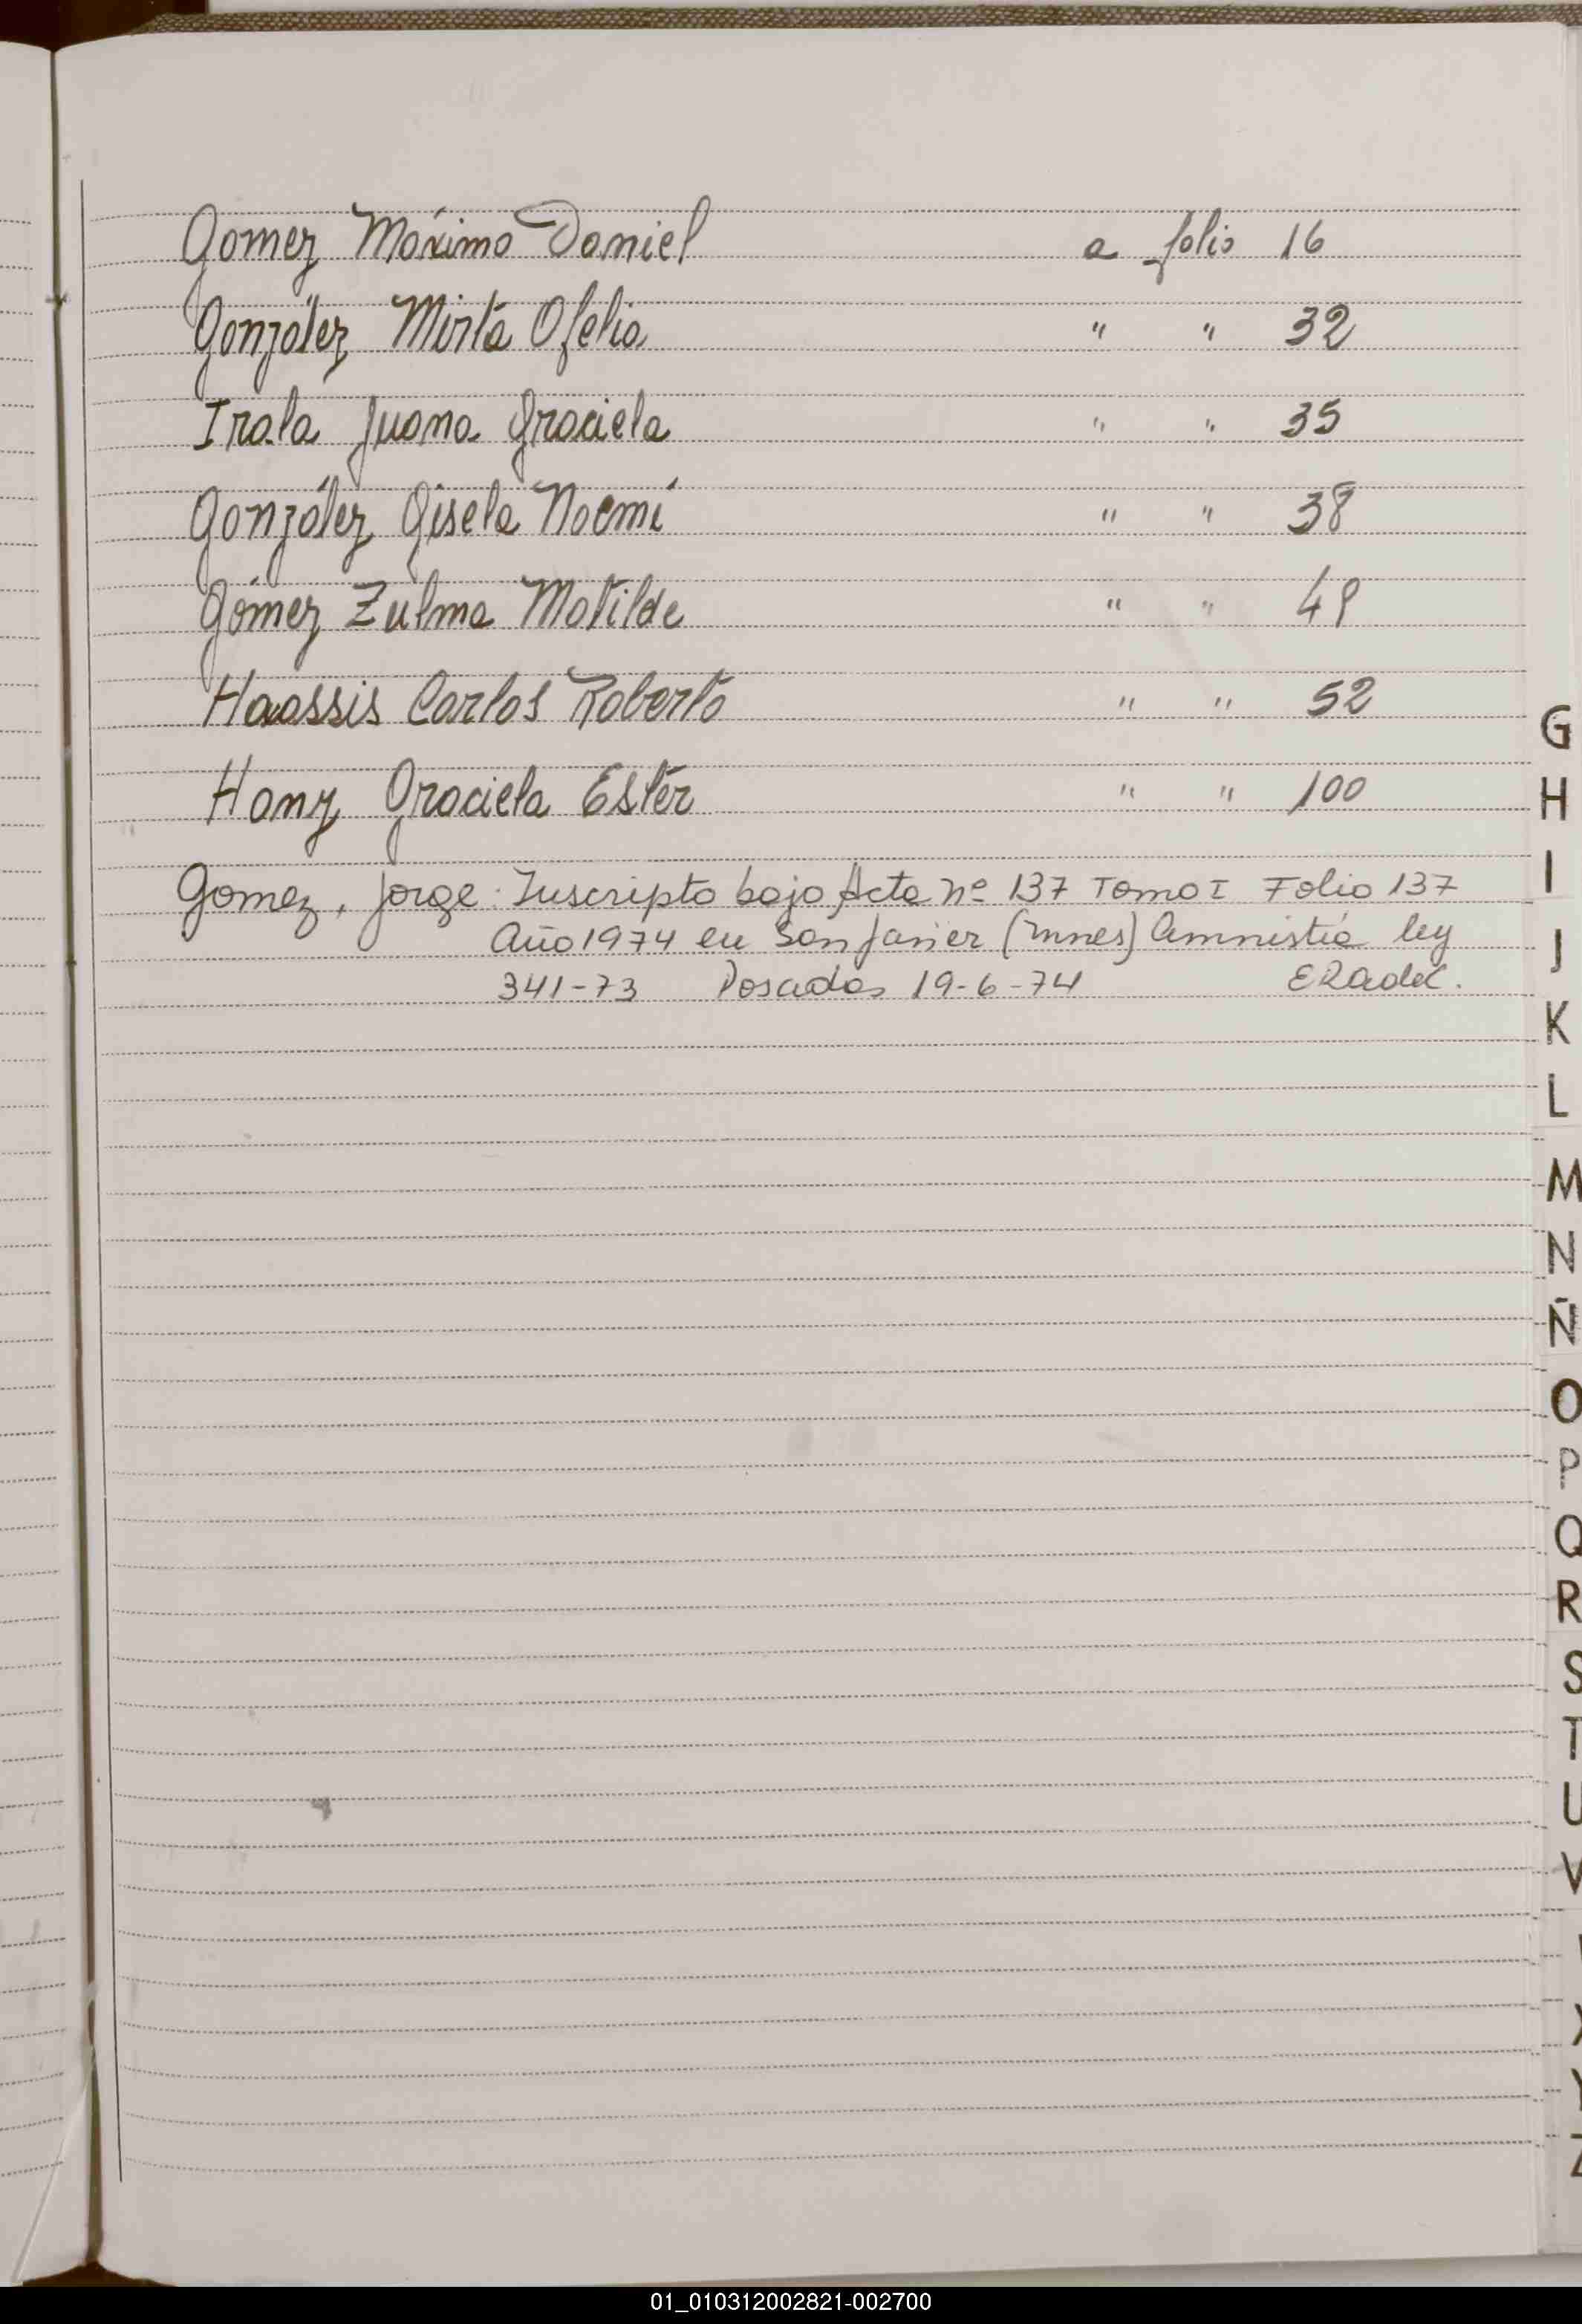 Gomez Máximo Daniel a folio 16
González Mirta Ofelia " " 32
Irala Juana Graciela " " 35
González Gisela Noemí " " 38
Gómez Zulma Matilde " " 49
Haassis Carlos Roberto " " 52
Hany Graciela Ester " " 100
Gomez, Jorge: Inscripto bajo Acta nº 137 Tomo I Folio 137
Año 1974 en San Javier (Mnes) Amnistía ley
341-73 Posadas 19-6-74
G
H
I
J
K
L
M
N
Ñ
O
P
Q
R
S
T
U
V
X
Y
Z
01_010312002821-002700